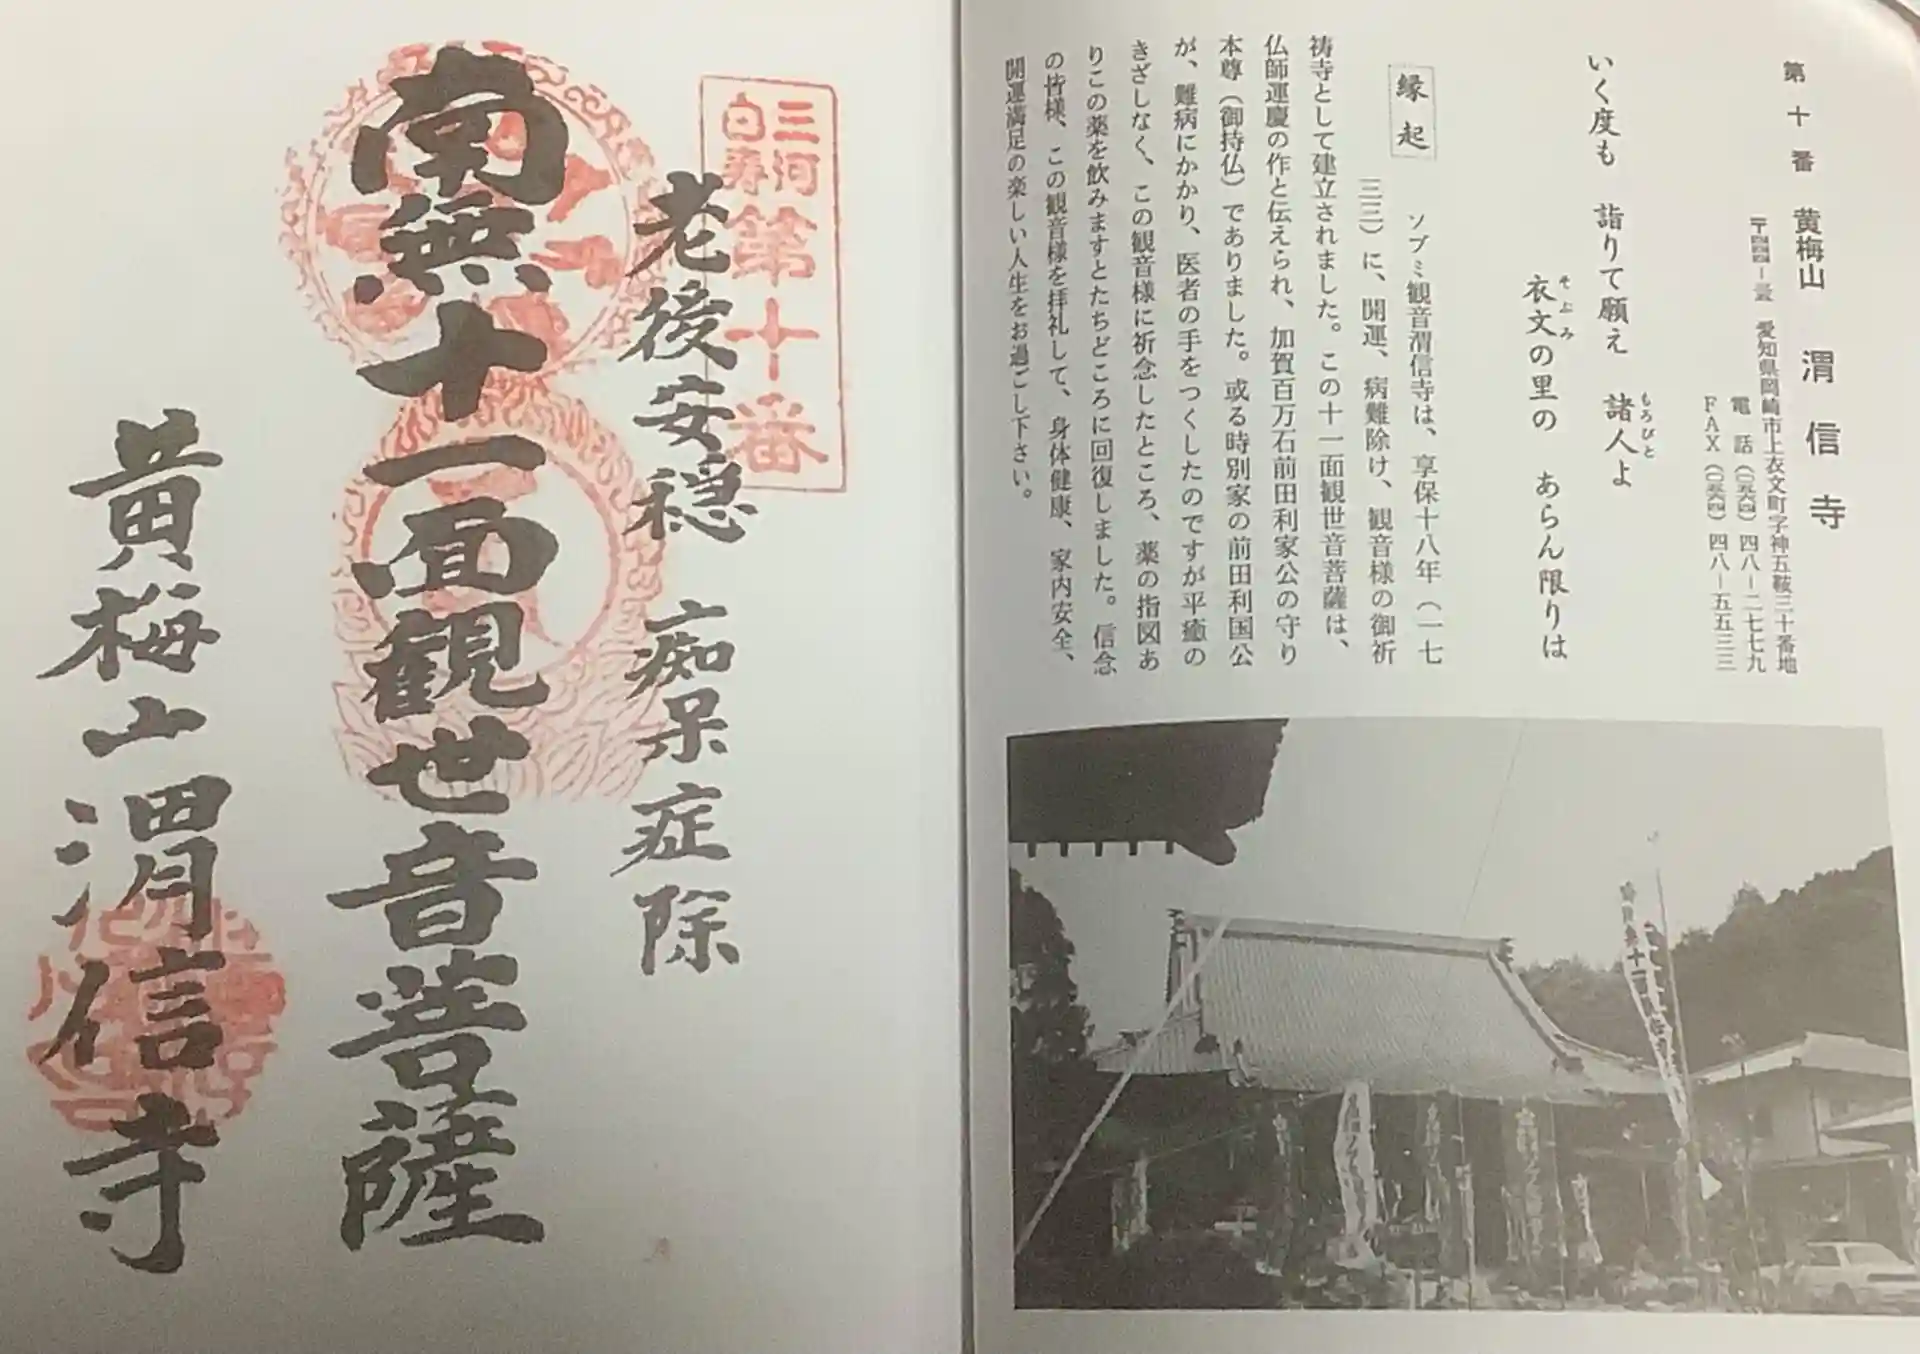 第十番 黄梅山 渭信寺
愛知県岡崎市上衣文町字神五鞍三十番地
電話(〇五六四)四八―二七七九
FAX(〇五六四)四八―五五三三
いく度も 詣りて願え 諸人よ
もろびと
衣文の里の あらん限りは
そぶみ
縁起
ソブミ観音渭信寺は、享保十八年(一七
三三)に、開運、病難除け、観音様の御祈
祷寺として建立されました。この十一面観世音菩薩は、
仏師運慶の作と伝えられ、加賀百万石前田利家公の守り
本尊(御持仏)でありました。或る時別家の前田利国公
が、難病にかかり、医者の手をつくしたのですが平癒の
きざしなく、この観音様に祈念したところ、薬の指図あ
りこの薬を飲みますとたちどころに回復しました。信念
の皆様、この観音様を拝礼して、身体健康、家内安全、
開運満足の楽しい人生をお過ごし下さい。
三河
白寿
第十番
老後安穏 痴呆症除
南無十一面観世音菩薩
黄梅山渭信寺